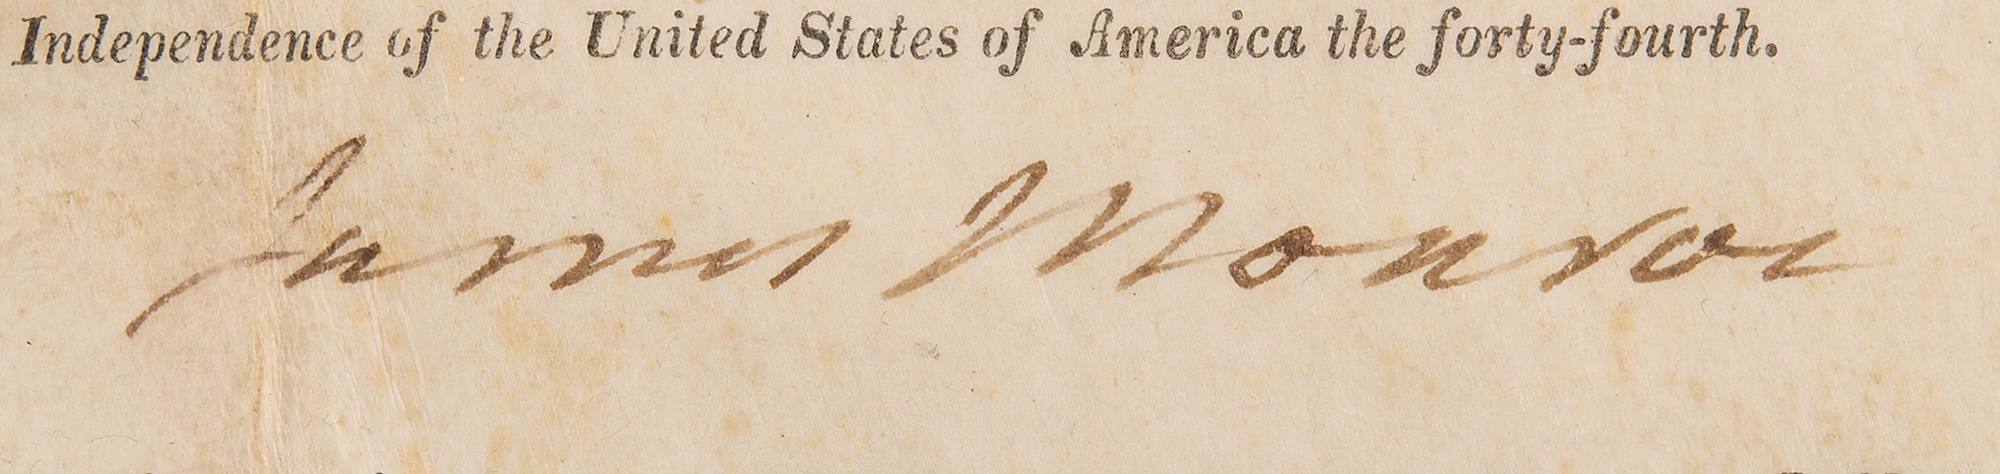 Independence of the United States of America the forty-fourth.
James Monroe